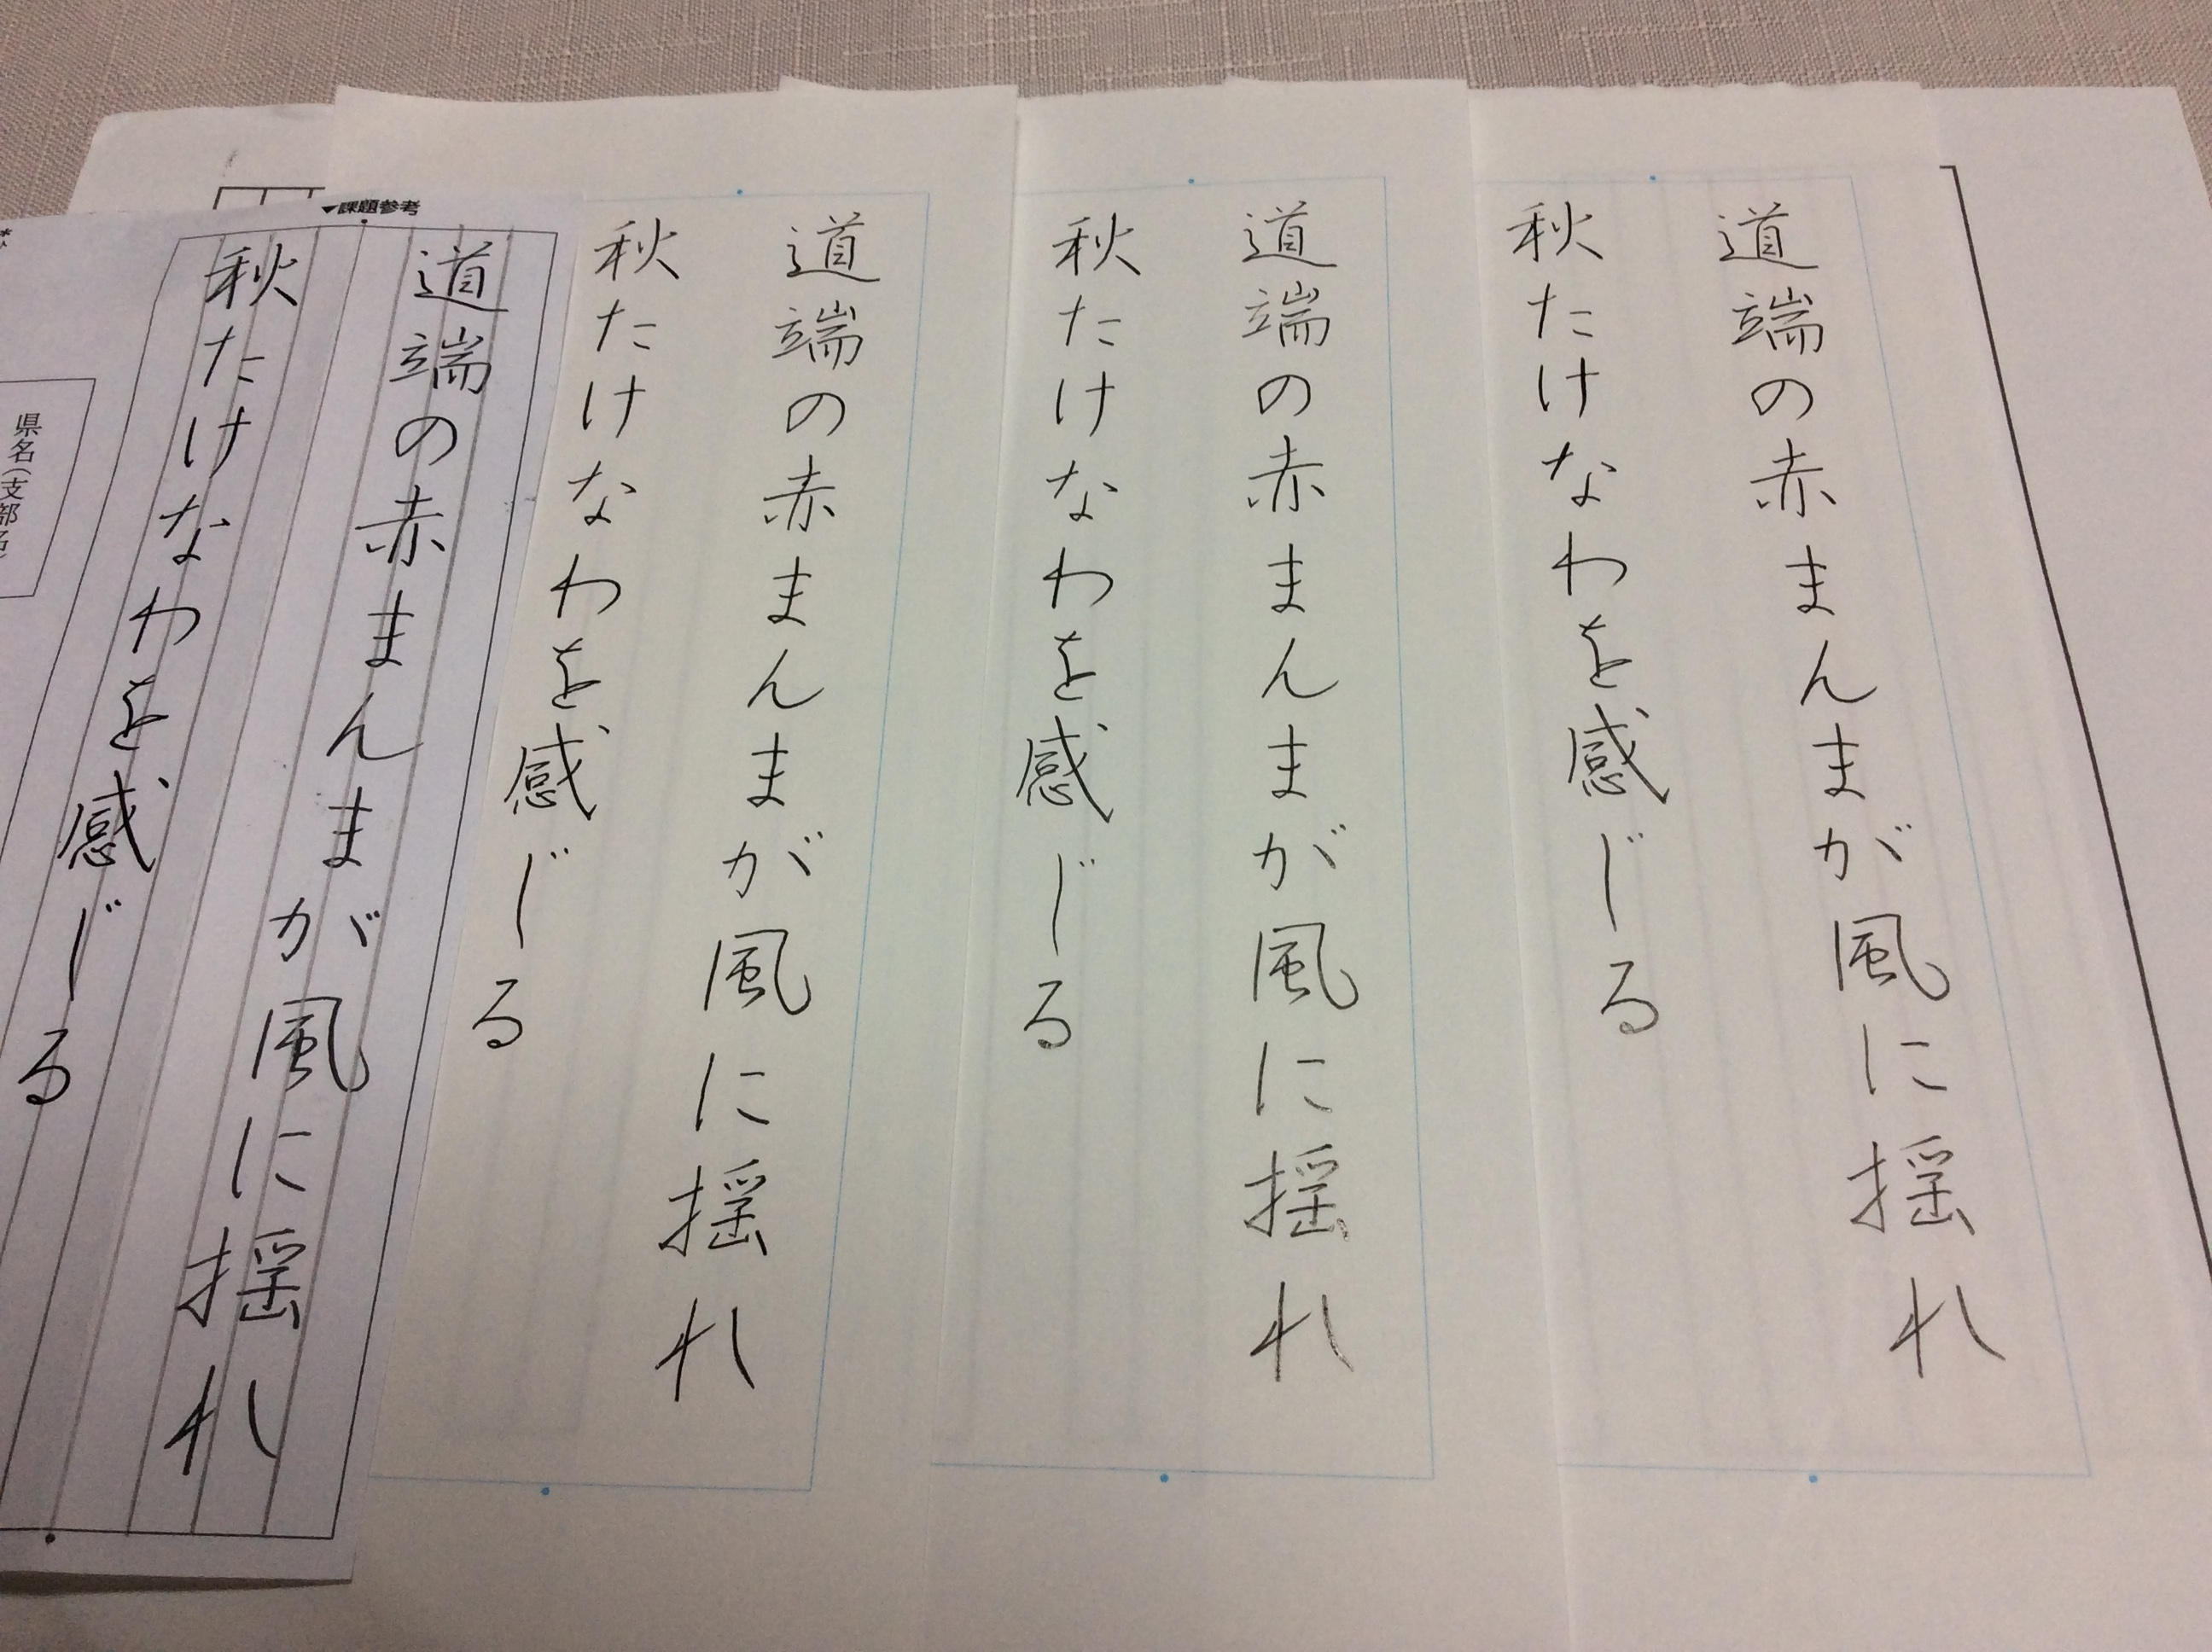 道端の赤まんまが風に揺れ
秋たけなわを感じる
道端の赤まんまが風に揺れ
秋たけなわを感じる
道端の赤まんまが風に揺れ
秋たけなわを感じる
▼課題参考
道端の赤まんまが風に揺れ
秋たけなわを感じる
県名(支部名